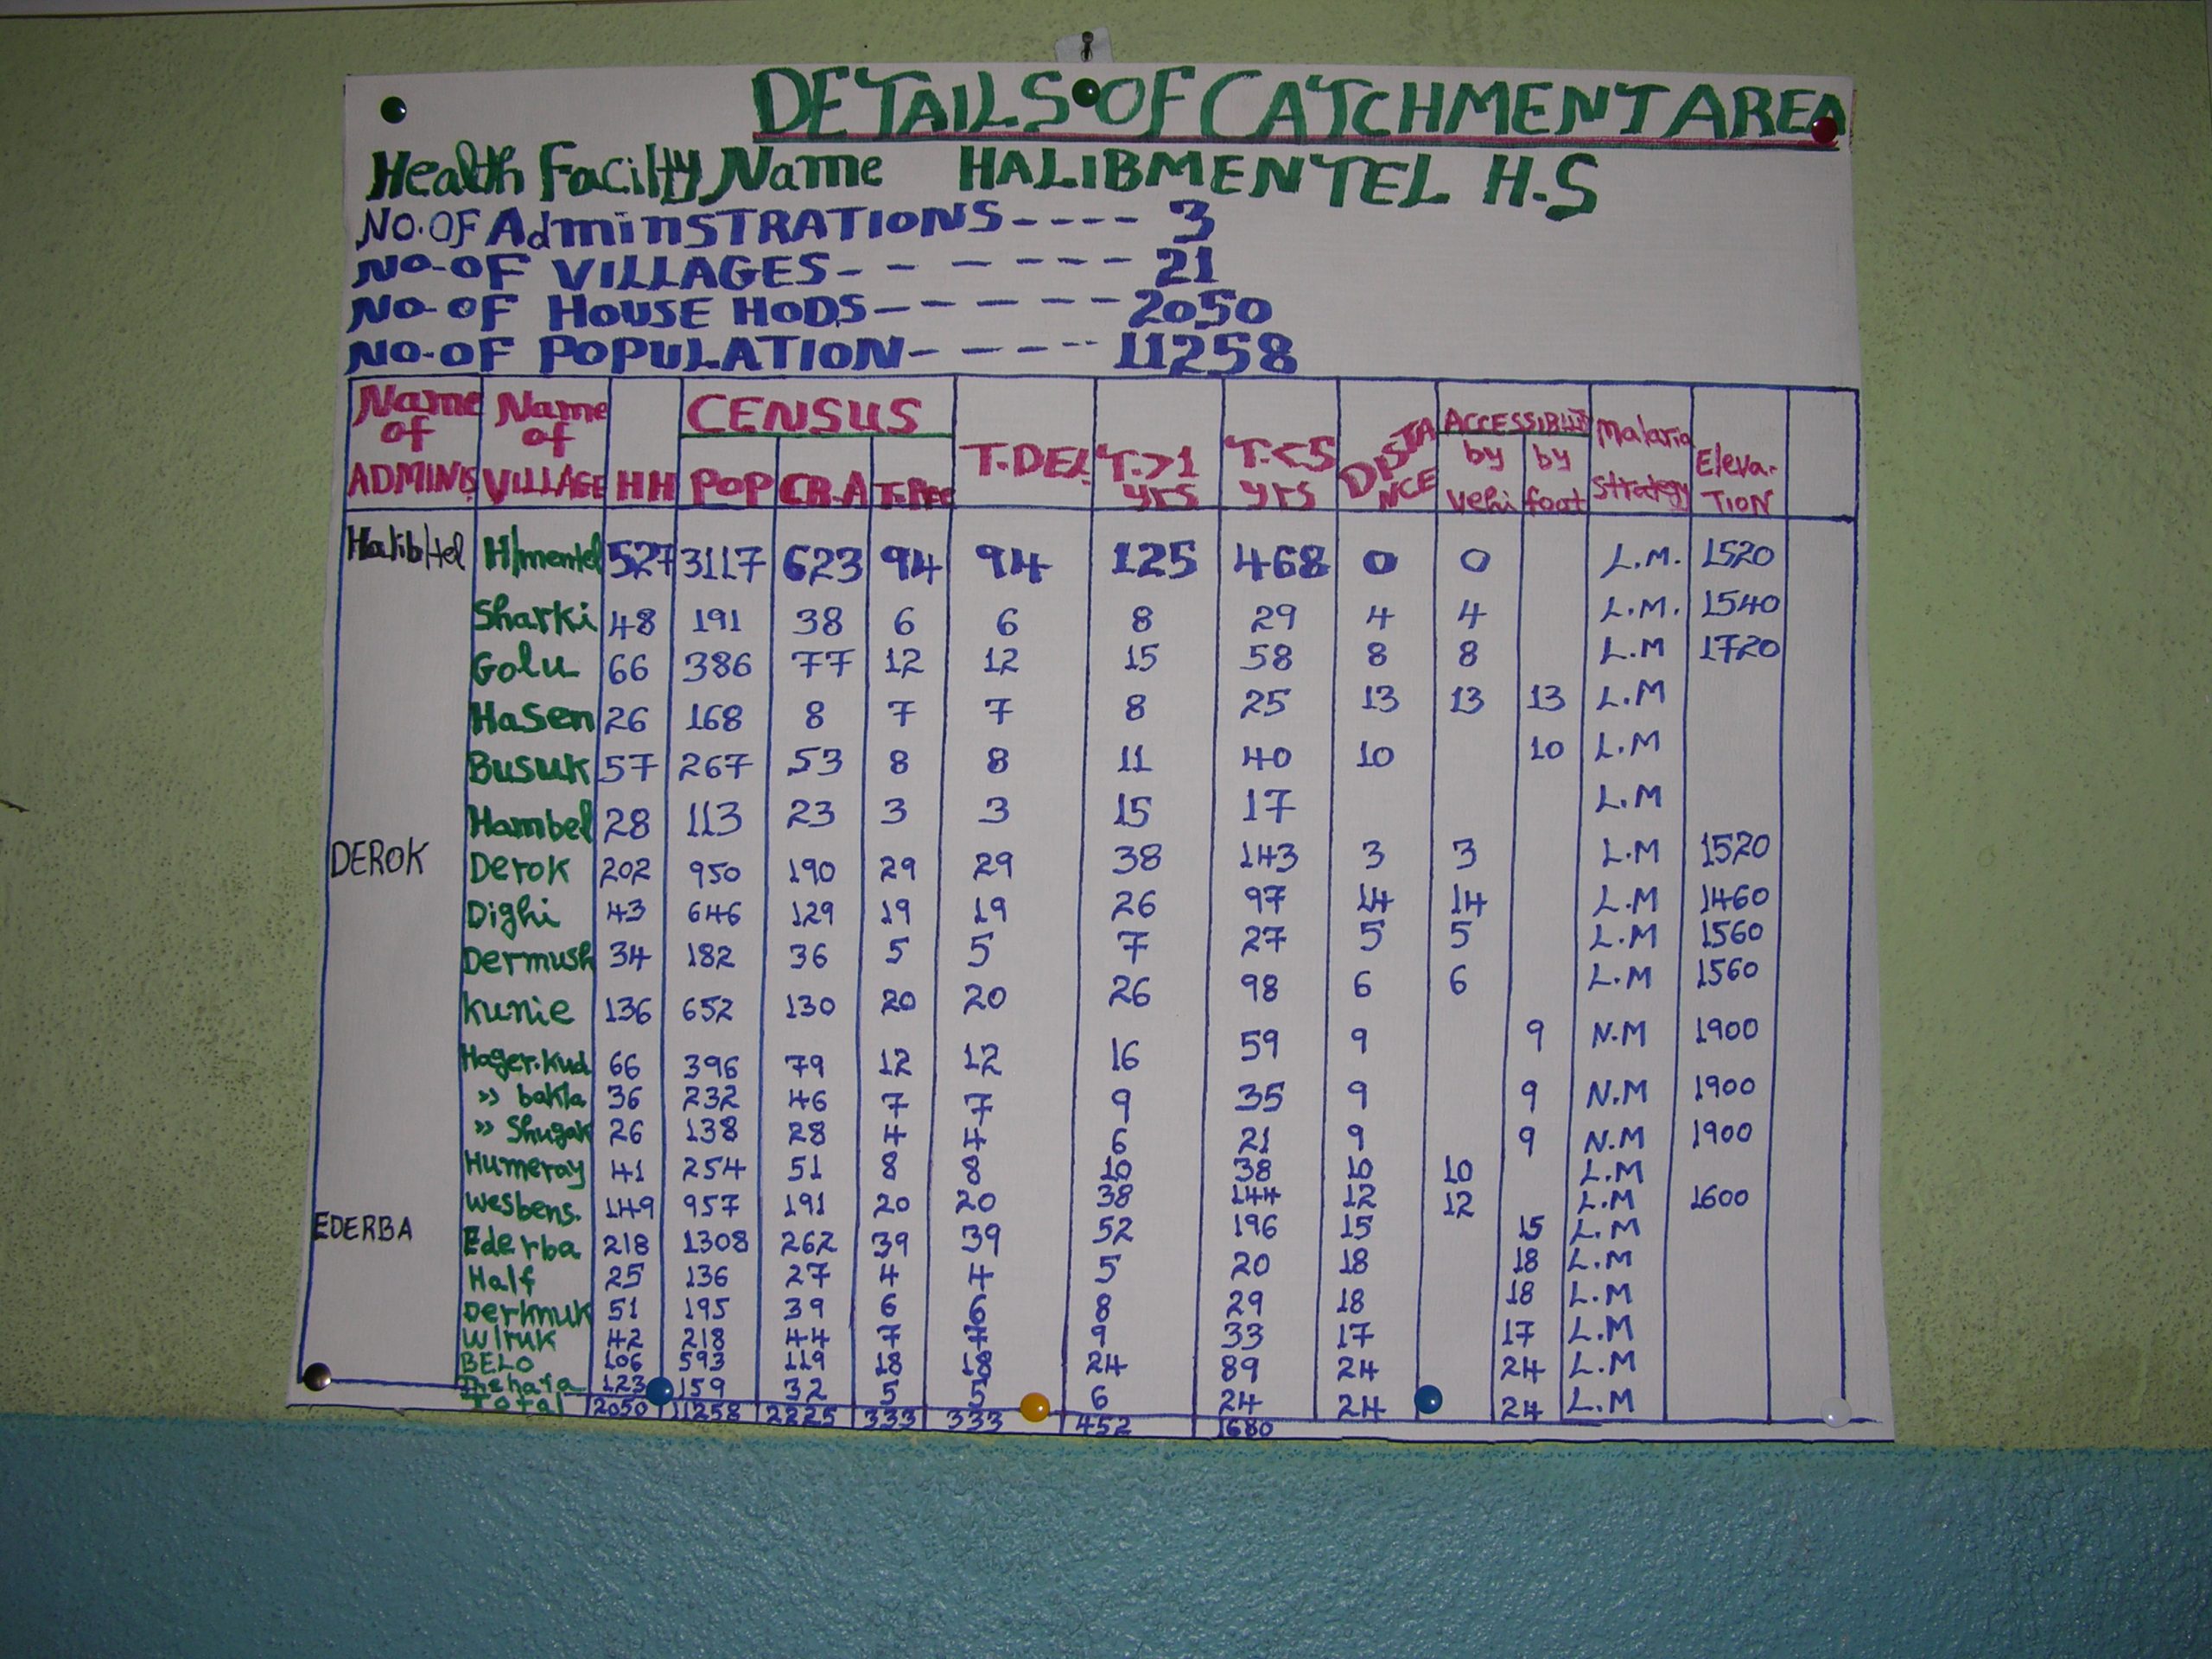 DETAILS OF CATCHMENT AREA
Health Facilty Name HALIBMENTEL H.S
NO. OF AdminSTRATIONS---- 3
NO-OF VILLAGES------- 21
NO-OF HOUSE HODS------ 2050
NO-OF POPULATION------ 11258
Name of ADMINIS Name of VILLAGE HH CENSUS POP CB.A T.PREG T.DEL T.>1 yrs T.<5 yrs DISTANCE ACCESSIBLIT by vehi by foot Malaria strategy Eleva-TION
Halib/tel H/mentel 527 3117 623 94 94 125 468 0 0 L.M. 1520
Sharki 48 191 38 6 6 8 29 4 4 L.M. 1540
Golu 66 386 77 12 12 15 58 8 8 L.M 1720
Hasen 26 168 8 7 7 8 25 13 13 13 L.M
Busuk 57 267 53 8 8 11 40 10 10 L.M
Hambel 28 113 23 3 3 15 17 L.M
DEROK Derok 202 950 190 29 29 38 143 3 3 L.M 1520
Dighi 43 646 129 19 19 26 97 14 14 L.M 1460
Dermush 34 182 36 5 5 7 27 5 5 L.M 1560
Kunie 136 652 130 20 20 26 98 6 6 L.M 1560
Hager.Kud 66 396 79 12 12 16 59 9 9 N.M 1900
>> bakla 36 232 46 7 7 9 35 9 9 N.M 1900
>> Shugak 26 138 28 4 4 6 21 9 9 N.M 1900
Humeray 41 254 51 8 8 10 38 10 10 L.M
Wesbens. 149 957 191 20 20 38 144 12 12 L.M 1600
EDERBA Ederba 218 1308 262 39 39 52 196 15 15 L.M
Half 25 136 27 4 4 5 20 18 18 L.M
Derhmuk 51 195 39 6 6 8 29 18 18 L.M
W/ruk 42 218 44 7 7 9 33 17 17 L.M
BELO 106 593 119 18 18 24 89 24 24 L.M
123 159 32 5 5 6 24 24 24 L.M
Total 2050 11258 2225 333 333 452 1680